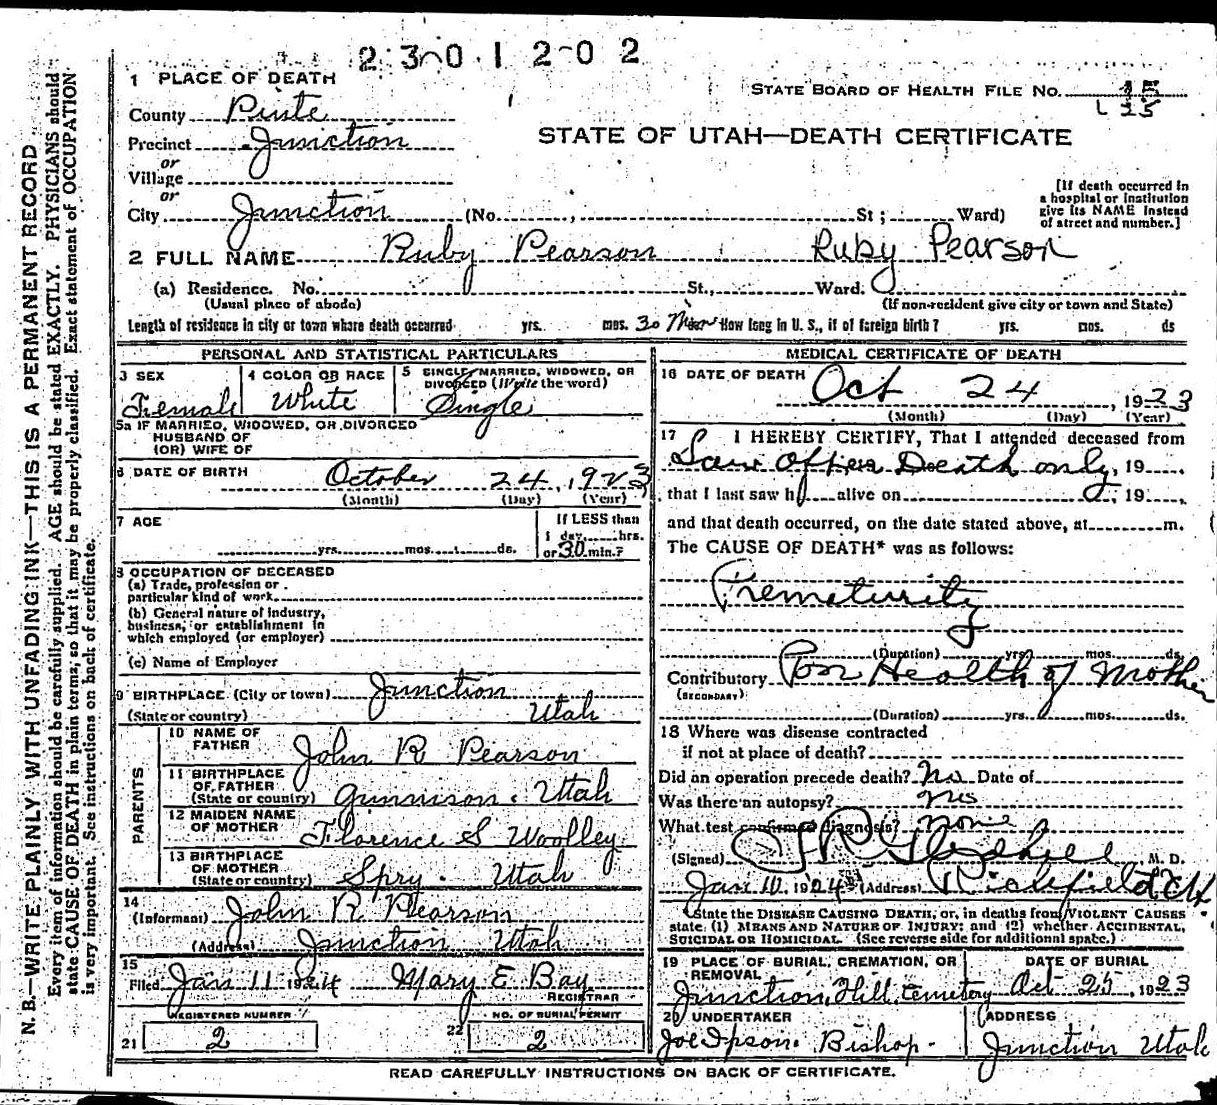 2301202
1 PLACE OF DEATH
STATE BOARD OF HEALTH FILE No.
County Piute
STATE OF UTAH—DEATH CERTIFICATE
Precinct Junction
or
Village
or
City Junction (No. , St; Ward)
[If death occurred in a hospital or institution give its NAME instead of street and number.]
2 FULL NAME Ruby Pearson Ruby Pearson
(a) Residence. No. St., Ward.
(Usual place of abode) (If non-resident give city or town and State)
Length of residence in city or town where death occurred yrs. mos. 30 How long in U. S., if of foreign birth? yrs. mos. ds
PERSONAL AND STATISTICAL PARTICULARS
3 SEX Female
4 COLOR OR RACE White
5 SINGLE, MARRIED, WIDOWED, OR DIVORCED (Write the word) Single
5a IF MARRIED, WIDOWED, OR DIVORCED
HUSBAND OF
(OR) WIFE OF
6 DATE OF BIRTH October 24, 1923
(Month) (Day) (Year)
7 AGE yrs. mos. ds.
If LESS than
1 day, hrs.
or 30 min.?
8 OCCUPATION OF DECEASED
(a) Trade, profession or
particular kind of work
(b) General nature of industry,
business, or establishment in
which employed (or employer)
(c) Name of Employer
9 BIRTHPLACE (City or town) Junction
(State or country) Utah
PARENTS
10 NAME OF FATHER John R Pearson
11 BIRTHPLACE OF FATHER (State or country) Gunnison. Utah
12 MAIDEN NAME OF MOTHER Florence S Woolley
13 BIRTHPLACE OF MOTHER (State or country) Spry. Utah
14
(Informant) John R. Pearson
(Address) Junction Utah
15
Filed Jan 11 1924 Mary E Bay
REGISTRAR
REGISTERED NUMBER
21 2
NO. OF BURIAL PERMIT
22 2
MEDICAL CERTIFICATE OF DEATH
16 DATE OF DEATH Oct 24, 1923
(Month) (Day) (Year)
17 I HEREBY CERTIFY, That I attended deceased from
Saw after Death only, 19
that I last saw h alive on , 19
and that death occurred, on the date stated above, at m.
The CAUSE OF DEATH* was as follows:
Prematurity
(Duration) yrs. mos. ds.
Contributory Poor Health of Mother
(SECONDARY)
(Duration) yrs. mos. ds.
18 Where was disease contracted
if not at place of death?
Did an operation precede death? No Date of
Was there an autopsy? no
What test confirmed diagnosis? none
(Signed) M. D.
Jan 10, 1924 (Address) Richfield Ut.
*State the DISEASE CAUSING DEATH, or, in deaths from VIOLENT CAUSES
state (1) MEANS AND NATURE OF INJURY; and (2) whether ACCIDENTAL,
SUICIDAL OR HOMICIDAL. (See reverse side for additional space.)
19 PLACE OF BURIAL, CREMATION, OR REMOVAL
Junction Hill Cemetery
DATE OF BURIAL
Oct 25, 1923
20 UNDERTAKER
Joe Ipson. Bishop.
ADDRESS
Junction Utah
READ CAREFULLY INSTRUCTIONS ON BACK OF CERTIFICATE.
N. B.—WRITE PLAINLY WITH UNFADING INK—THIS IS A PERMANENT RECORD
Every item of information should be carefully supplied. AGE should be stated EXACTLY. PHYSICIANS should
state CAUSE OF DEATH in plain terms, so that it may be properly classified. Exact statement of OCCUPATION
is very important. See instructions on back of certificate.